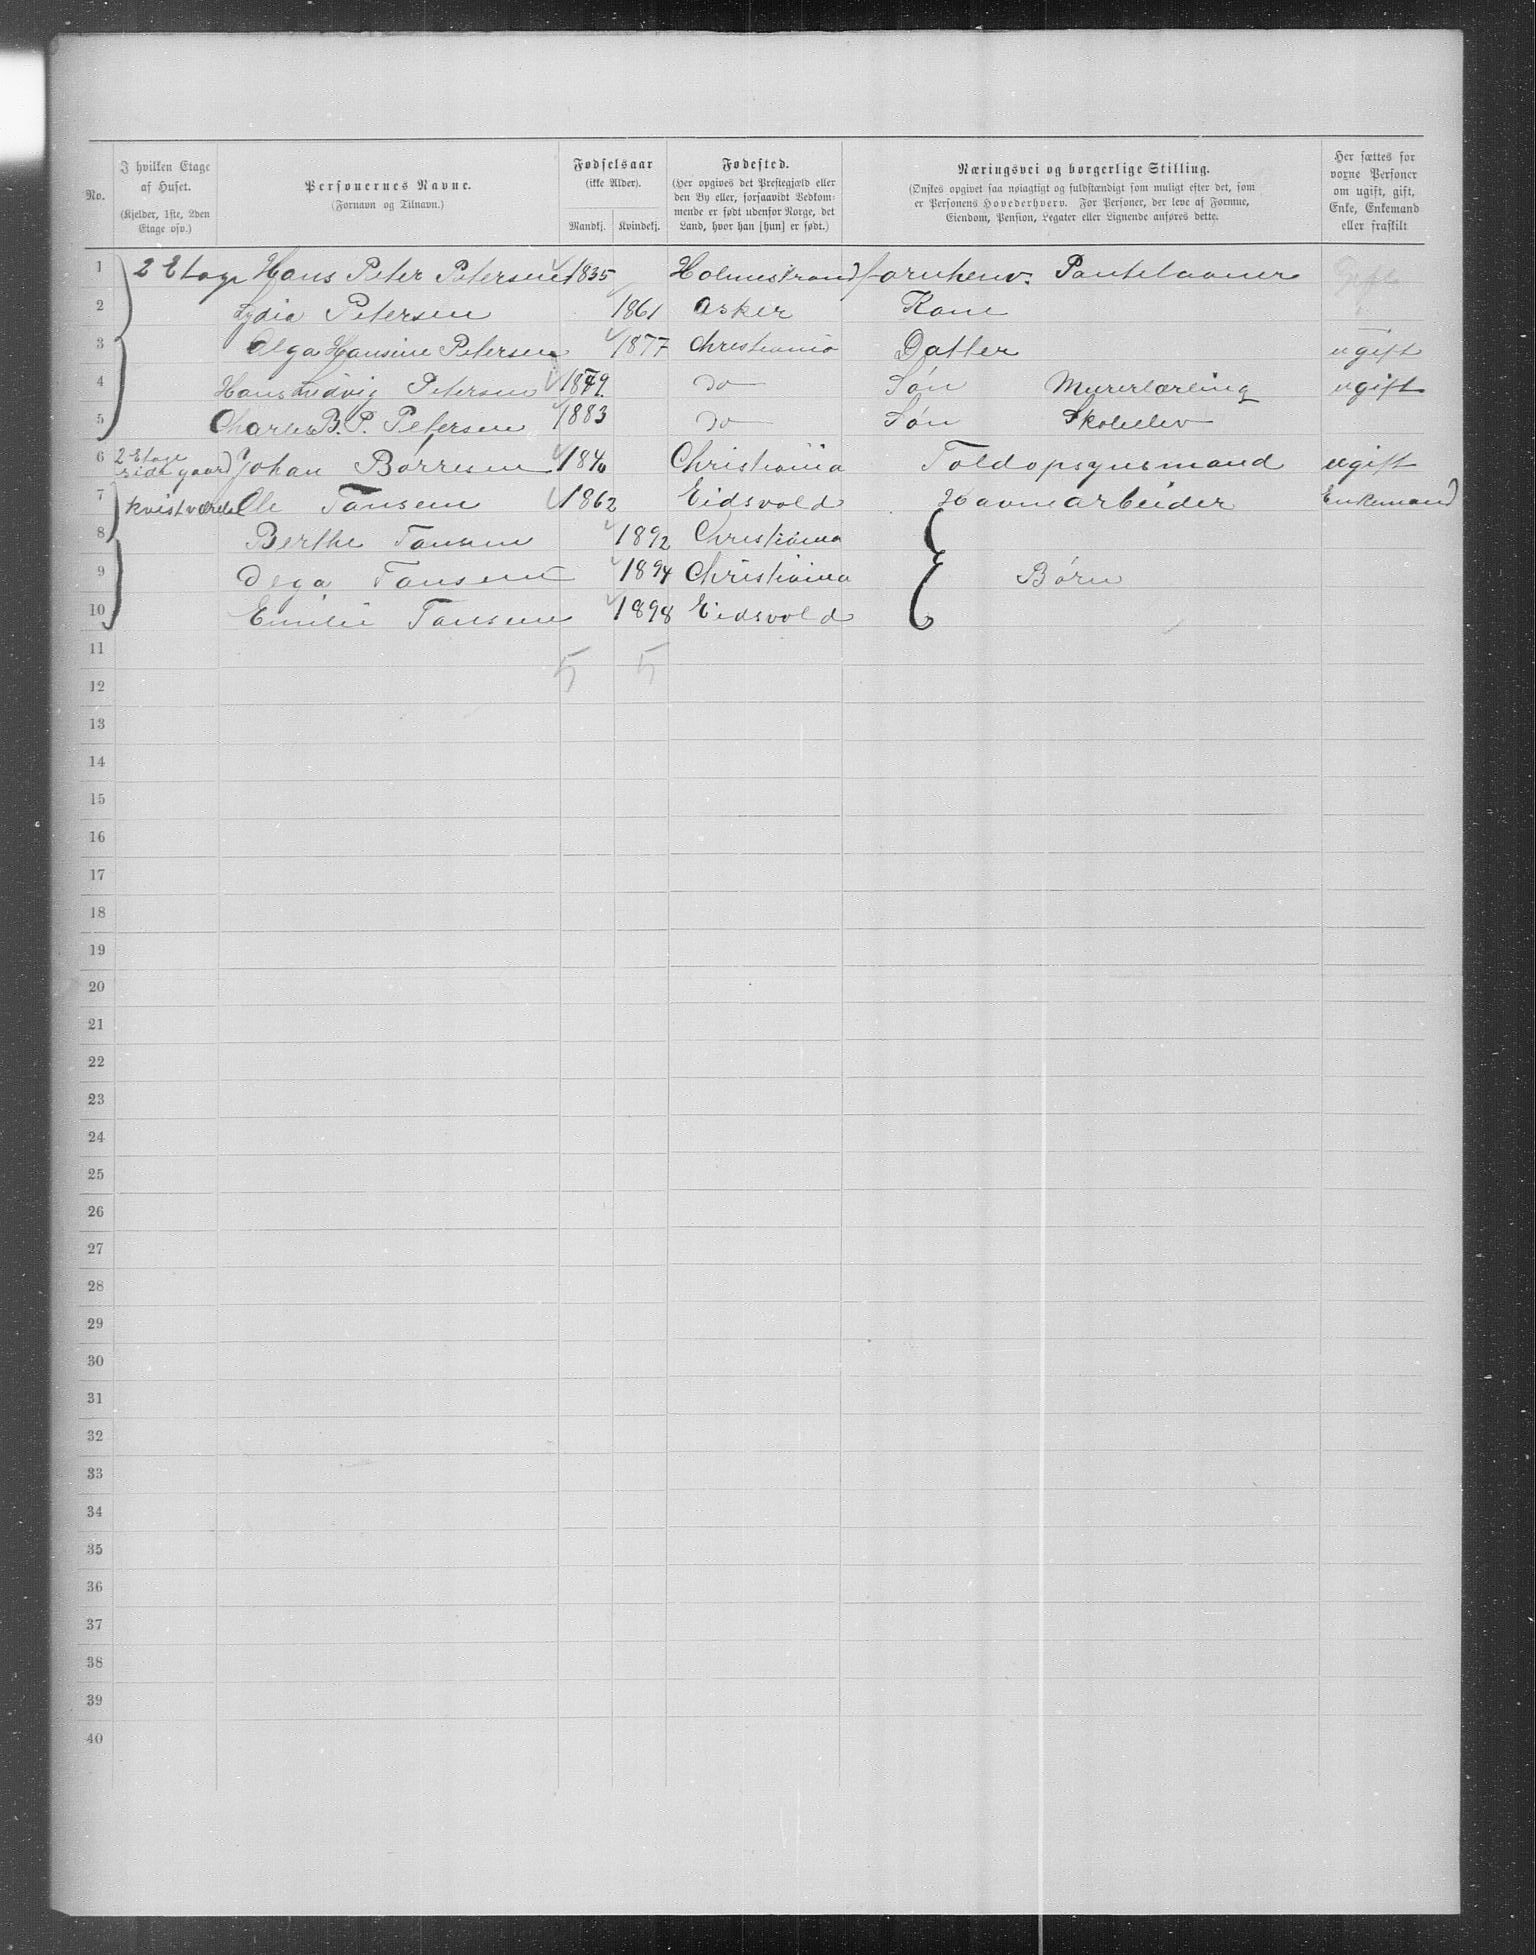 No.
I hvilken Etage af Huset. (Kjelder, 1ste, 2den Etage osv.)
Personernes Navne. (Fornavn og Tilnavn.)
Fødselsaar (ikke Alder).
Mandkj. Kvindekj.
Fødested. (Her opgives det Prestegjæld eller den By eller, forsaavidt Vedkommende er født udenfor Norge, det Land, hvor han [hun] er født.)
Næringsvei og borgerlige Stilling. (Ønskes opgivet saa nøiagtigt og fuldstændigt som muligt efter det, som er Personens Hovederhverv. For Personer, der leve af Formue, Eiendom, Pension, Legater eller Lignende anføres dette.)
Her sættes for voxne Personer om ugift, gift, Enke, Enkemand eller fraskilt
1 2 Etage Hans Peter Petersen 1835 Holmestrand forhenv. Pantelaaner Gift
2 Lydia Petersen 1861 Asker Kone
3 Olga Hansine Petersen 1877 Christiania Datter ugift
4 Hans Ludvig Petersen 1879 do Søn Murerlærling ugift
5 Charles B. P. Petersen 1883 do Søn Skoleelev
6 2 Etage Johan Børresen 1840 Christiania Toldopsynsmand ugift
7 Ole Tansem 1862 Eidsvold Havnearbeider Enkemand
8 Berthe Tansem 1892 Christiania
9 Tansem 1894 Christiania Børn
10 Emilie Tansem 1898 Eidsvold
11 5 5
12
13
14
15
16
17
18
19
20
21
22
23
24
25
26
27
28
29
30
31
32
33
34
35
36
37
38
39
40